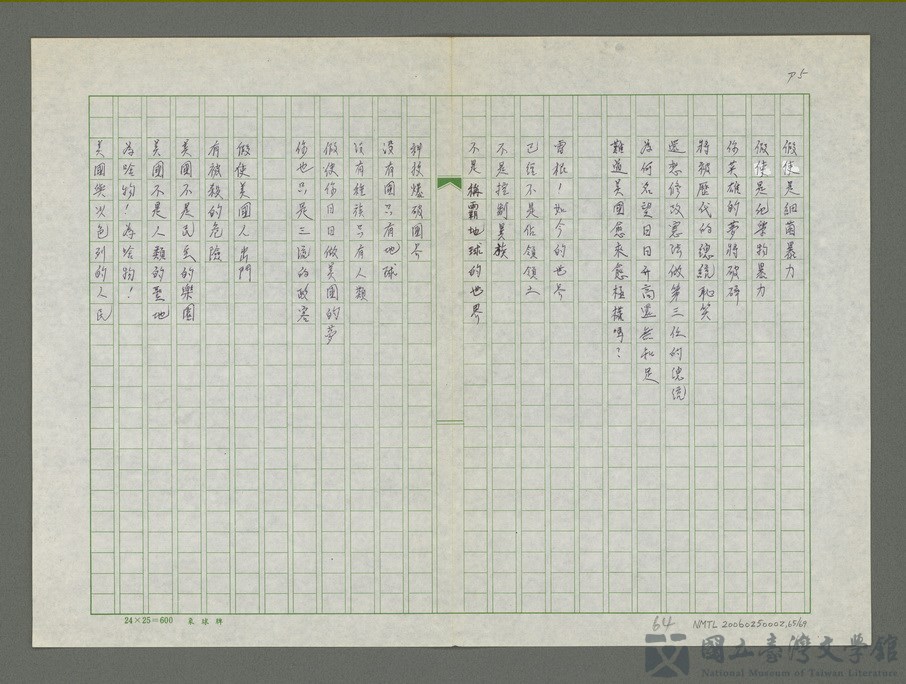 P5
假使是細菌暴力
假使是化學物暴力
你英雄的夢將破碎
將被歷代的總統恥笑
還想修改憲法做第三任的總統
為何名望日日升高還無知足
難道美國愈來愈極權嗎？
雷根！如今的世界
已經不是佔領領土
不是控制異族
不是稱霸地球的世界
科技爆破國界
沒有國只有地球
沒有種族只有人類
假使你日日做美國的夢
你也只是三流的政客
假使美國人出門
有被殺的危險
美國不是民主的樂園
美國不是人類的聖地
為啥物！為啥物！
美國與以色列的人民
24×25=600
64
NMTL 20060250002,65/69
國立臺灣文學館
National Museum of Taiwan Literature